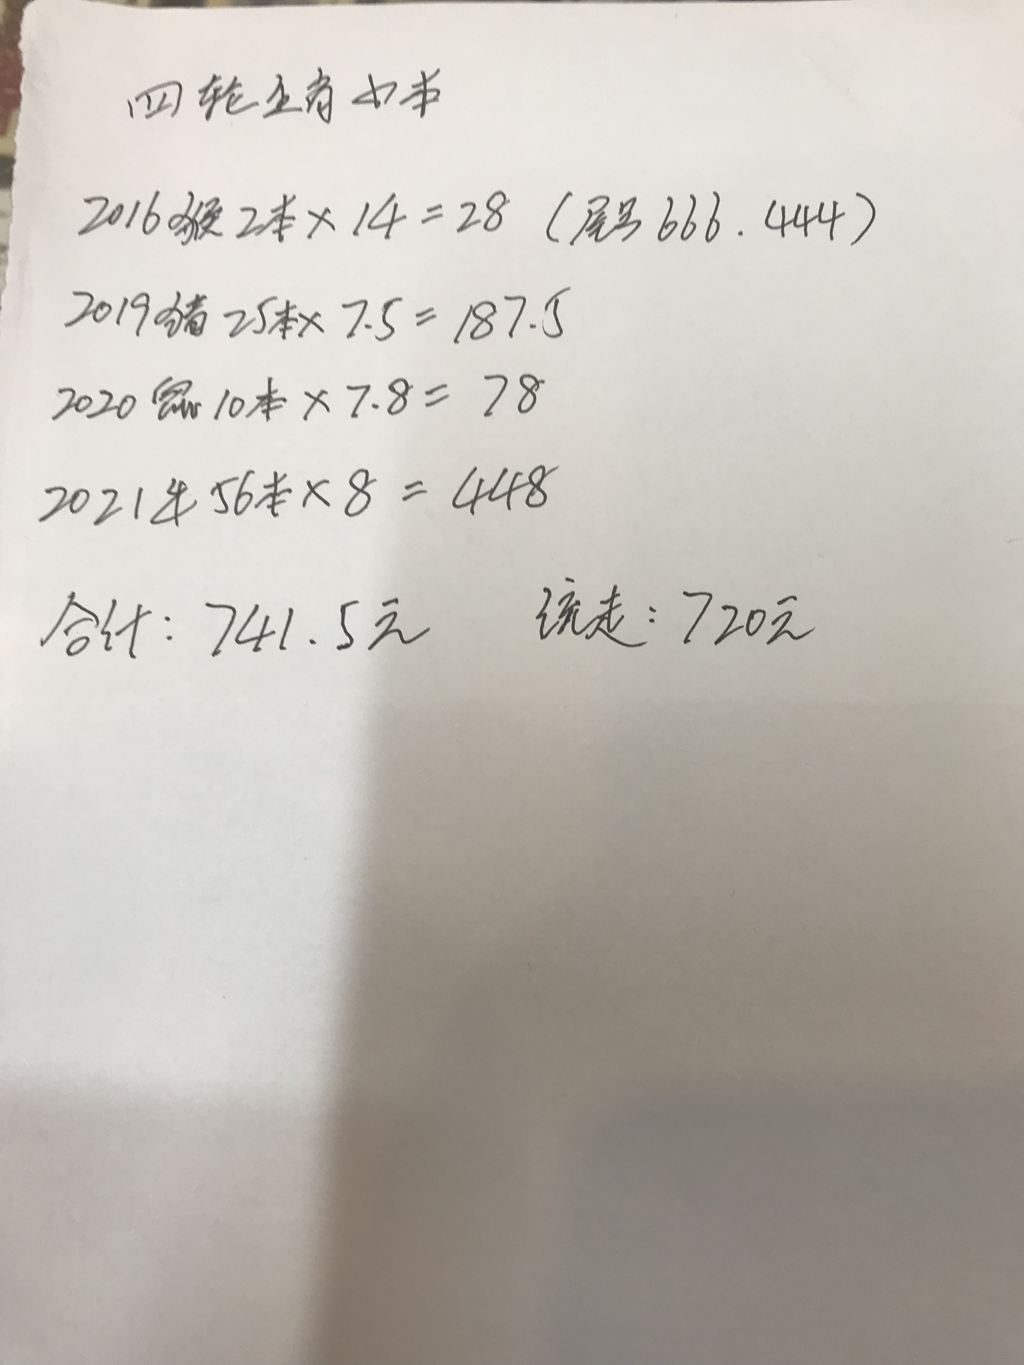 四轮生肖小本
2016猴2本×14=28 (尾号666.444)
2019猪25本×7.5=187.5
2020鼠10本×7.8=78
2021牛56本×8=448
合计:741.5元 统走:720元